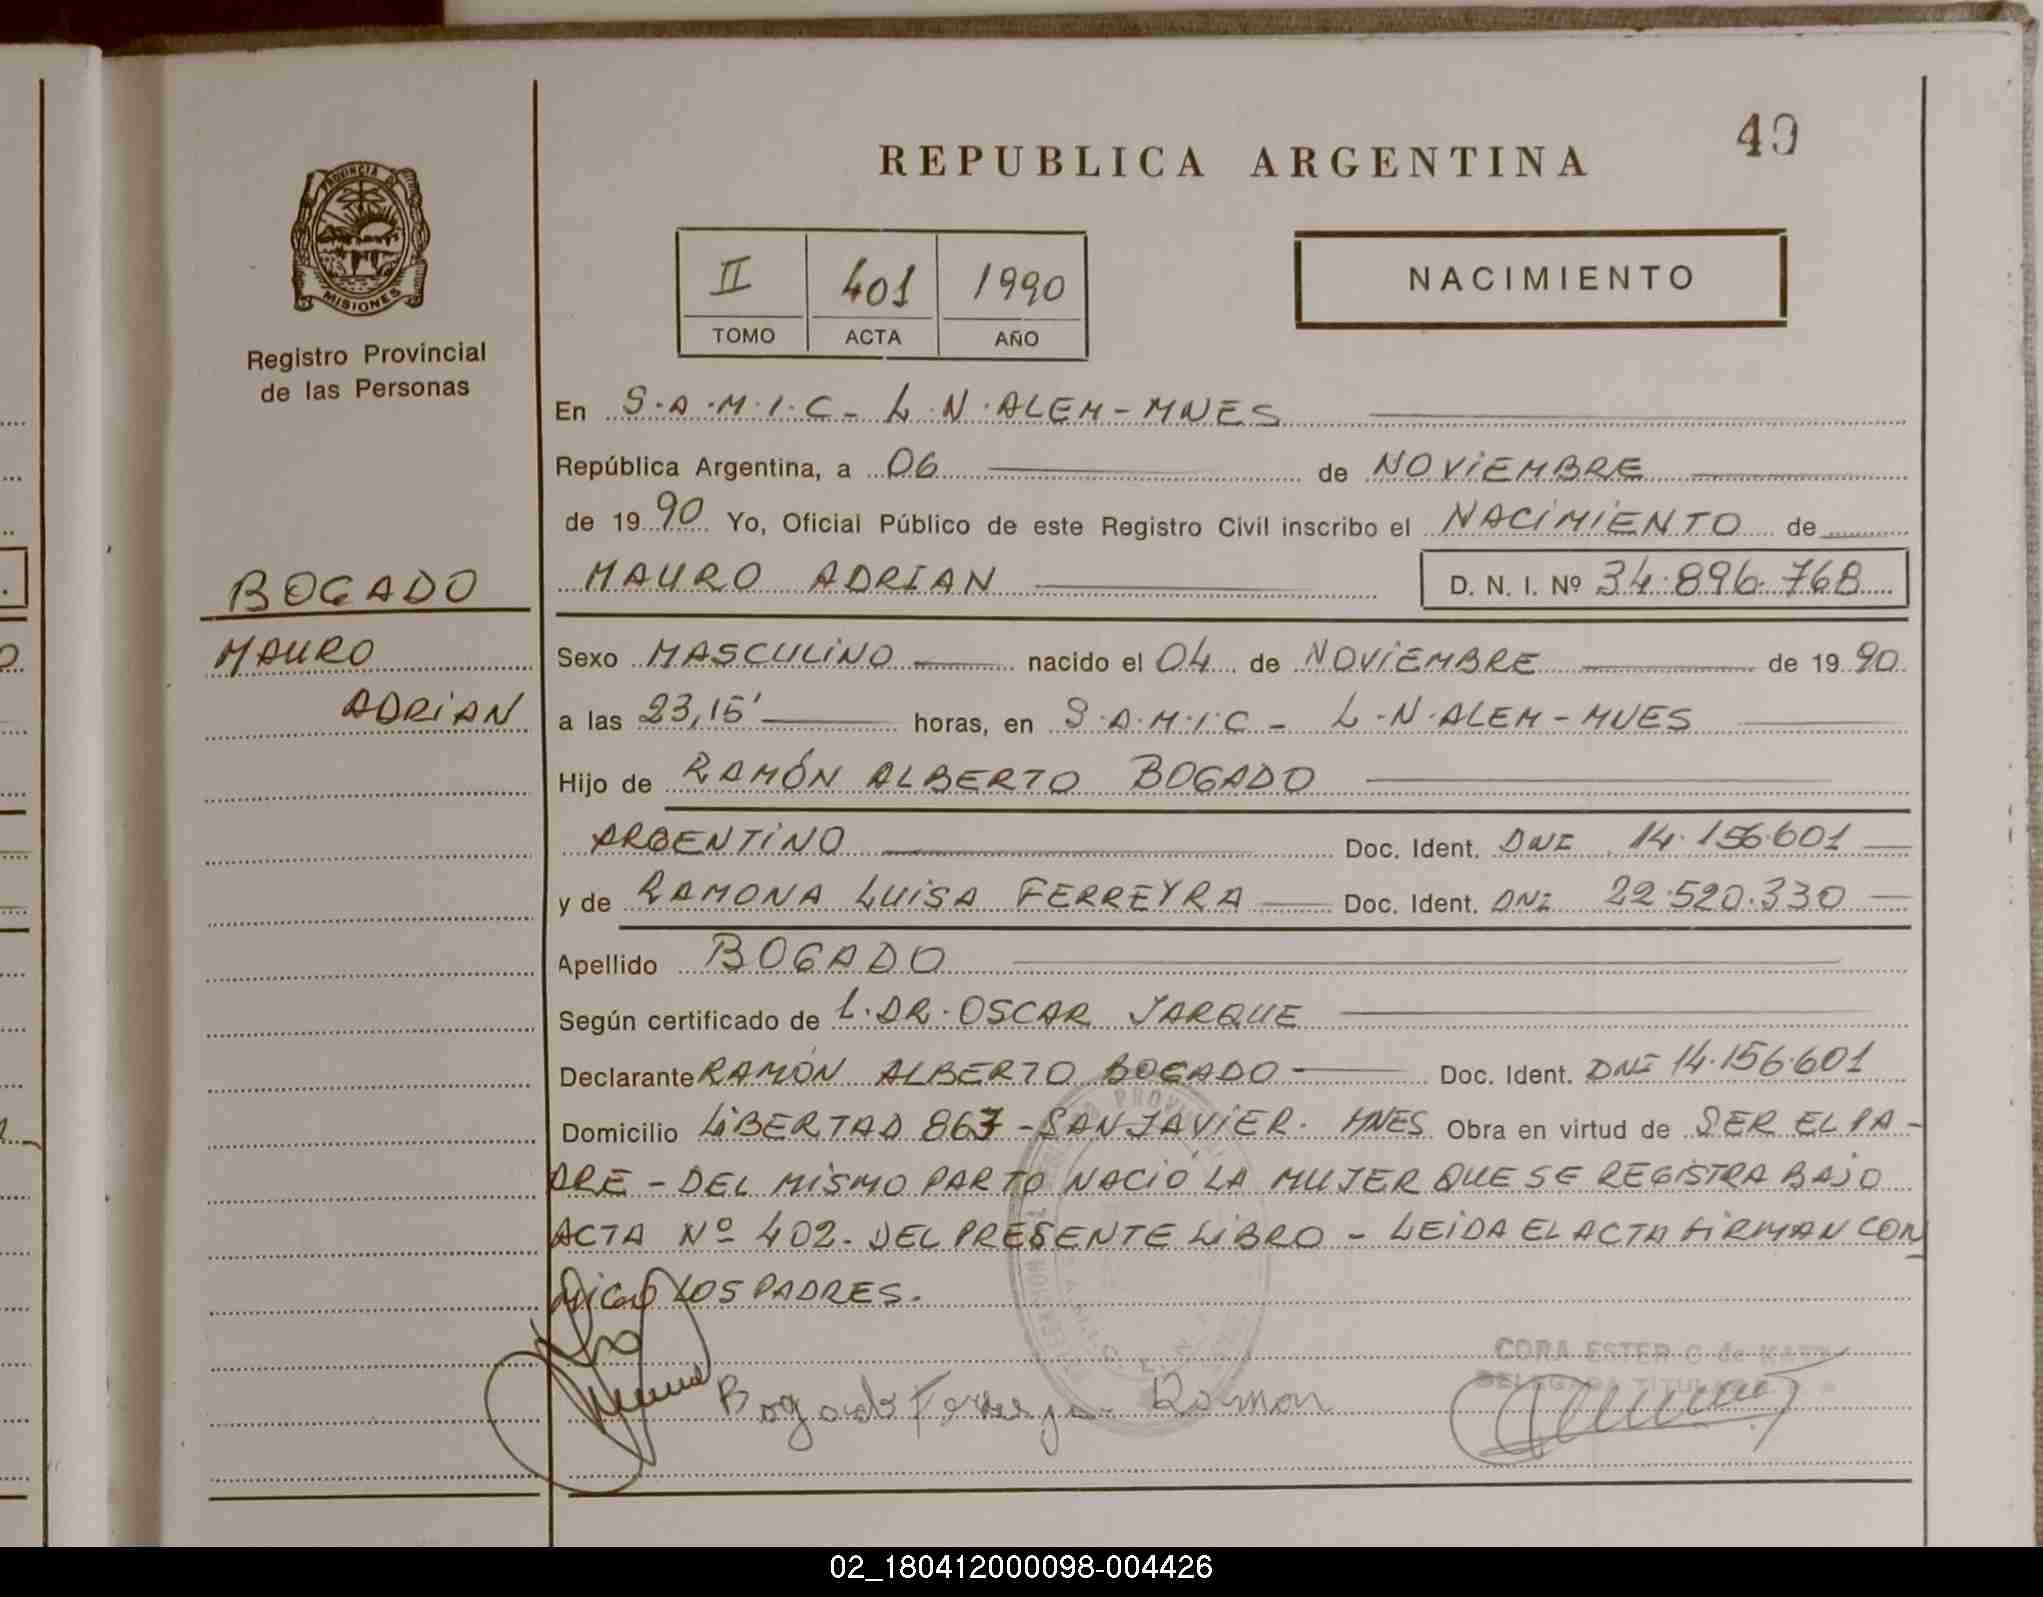 40
REPUBLICA ARGENTINA
PROVINCIA DE
MISIONES
Registro Provincial
de las Personas
II 401 1990
TOMO ACTA AÑO
NACIMIENTO
En S.A.M.I.C - L.N.ALEM - MNES
República Argentina, a 06 de NOVIEMBRE
de 19 90 Yo, Oficial Público de este Registro Civil inscribo el NACIMIENTO de
MAURO ADRIAN D. N. I. Nº 34.896.768
BOGADO
MAURO
ADRIAN
Sexo MASCULINO nacido el 04 de NOVIEMBRE de 19 90
a las 23,15' horas, en S.A.M.I.C - L.N.ALEM - MNES
Hijo de RAMÓN ALBERTO BOGADO
ARGENTINO Doc. Ident. DNI 14.156.601
y de RAMONA LUISA FERREYRA Doc. Ident. DNI 22.520.330
Apellido BOGADO
Según certificado de L. DR. OSCAR JARQUE
Declarante RAMÓN ALBERTO BOGADO Doc. Ident. DNI 14.156.601
Domicilio LIBERTAD 867 - SAN JAVIER. MNES Obra en virtud de SER EL PA-
DRE - DEL MISMO PARTO NACIÓ LA MUJER QUE SE REGISTRA BAJO
ACTA Nº 402. DEL PRESENTE LIBRO - LEIDA EL ACTA FIRMAN CON
MIGO LOS PADRES.
CORA ESTER C de
DELEGADA TITULAR
Bogado Ferreyra Ramon
02_180412000098-004426